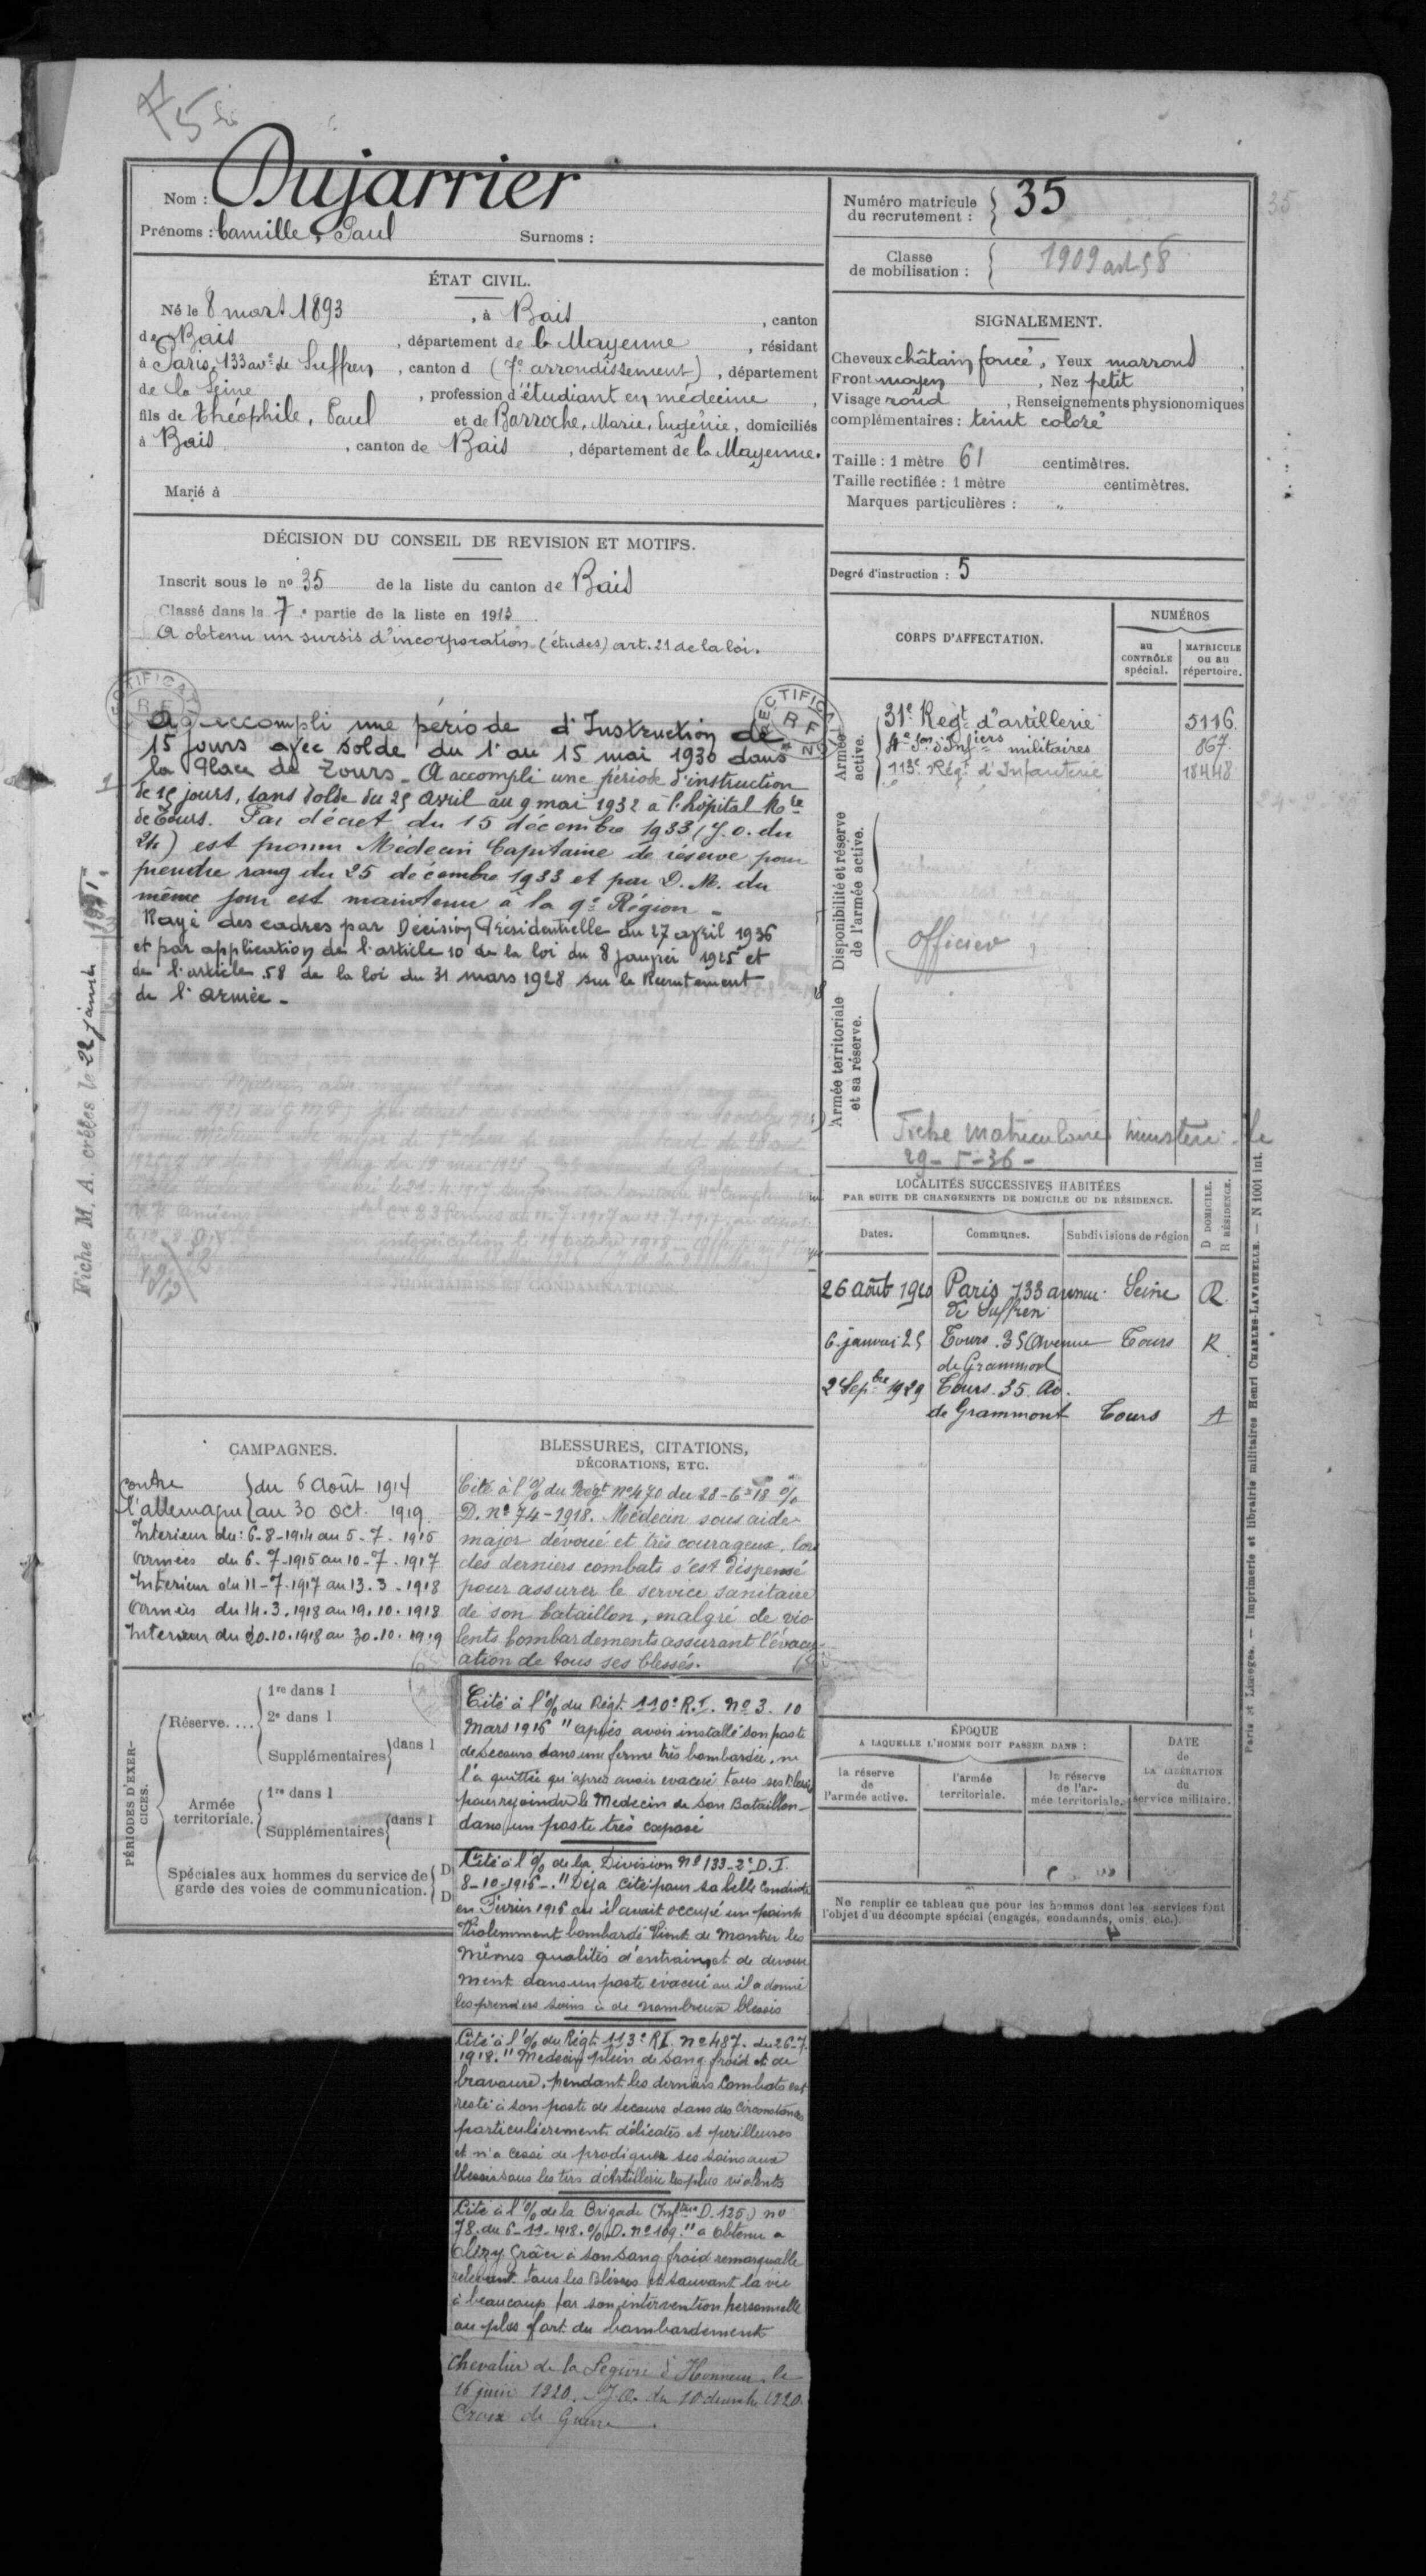 75
Nom : Dujarrier
Prénoms : Camille, Paul Surnoms :
ÉTAT CIVIL.
Né le 8 mars 1893, à Bais, canton
de Bais, département de la Mayenne, résidant
à Paris, 133 ave de Suffren, canton d (7e arrondissement), département
de la Seine, profession d'étudiant en médecine,
fils de Théophile, Paul et de Barroche, Marie, Eugénie, domiciliés
à Bais, canton de Bais, département de la Mayenne.
Marié à
DÉCISION DU CONSEIL DE REVISION ET MOTIFS.
Inscrit sous le no 35 de la liste du canton de Bais
Classé dans la 7e partie de la liste en 1913
A obtenu un sursis d'incorporation (études) art. 21 de la loi.
RECTIFICATION RF
RECTIFICATION RF
A accompli une période d'Instruction de
15 jours avec solde du 1er au 15 mai 1930 dans
la Place de Tours - A accompli une période d'instruction
de 15 jours, sans solde du 25 avril au 9 mai 1932 à l'hôpital Mre
de Tours. Par décret du 15 décembre 1933 (J.O. du
24) est promu Médecin Capitaine de réserve pour
prendre rang du 25 décembre 1933 et par D. M. du
même jour est maintenu à la 9e Région -
Rayé des cadres par Décision Présidentielle du 27 avril 1936
et par application de l'article 10 de la loi du 8 janvier 1925 et
de l'article 58 de la loi du 31 mars 1928 sur le Recrutement
de l'armée -
JUDICIAIRES ET CONDAMNATIONS.
Fiche M. A. créées le 22 janvier
CAMPAGNES.
Contre } du 6 Août 1914
l'allemagne { au 30 oct. 1919
Interieur du : 6-8-1914 au 5-7-1915
Armées du 6-7-1915 au 10-7-1917
Interieur du 11-7-1917 au 13.3-1918
Armées du 14.3.1918 au 19.10.1918
Interieur du 20.10.1918 au 30.10.1919
BLESSURES, CITATIONS,
DÉCORATIONS, ETC.
Cité à l'% du Régt no 470 du 28-6-18 %
D. no 74-1918. Médecin sous aide-
major dévoué et très courageux, lors
des derniers combats s'est dépensé
pour assurer le service sanitaire
de son bataillon, malgré de vio
lents bombardements assurant l'évacu
ation de tous ses blessés.
Cité à l'% du Régt. 110e R.I. No 3. 10
Mars 1916 "après avoir installé son poste
de secours dans une ferme très bombardée, ne
l'a quittée qu'après avoir évacué tous ses blessés
pour rejoindre le Medecin de son Bataillon
dans un poste très exposé
Cité à l'% de la Division No 133-2e D.I.
8-10-1916-. "Déja cité pour sa belle conduite
en Février 1916 où il avait occupé un point
Violemment bombardé Vient de montrer les
mêmes qualités d'entrain et de dévoue
ment dans un poste évacué où il a donné
les premiers soins à de nombreux blessés
Cité à l'% du Régt. 113e RI. No 487. du 26-7.
1918. "Médecin plein de sang froid et de
bravoure, pendant les derniers combats est
resté à son poste de secours dans des circonstances
particulièrement délicates et périlleuses
et n'a cessé de prodiguer ses soins aux
blessés sous les tirs d'Artillerie les plus violents
Cité à l'% de la Brigade (Inftrie D. 125) no
78. du 6-11-1918. % D. No 109. "a obtenu a
grâce à son sang froid remarquable
relevant tous les blessés et sauvant la vie
à beaucoup par son intervention personnelle
au plus fort du bombardement
Chevalier de la Légion d'Honneur. le
16 juin 1920. J.O. du 10 1920.
Croix de Guerre.
PÉRIODES D'EXERCICES.
Réserve.... 1re dans l
2e dans l
Supplémentaires dans l
Armée territoriale. 1re dans l
Supplémentaires dans l
Spéciales aux hommes du service de garde des voies de communication. D
D
Numéro matricule
du recrutement : 35
35
Classe
de mobilisation : 1909 art 58
SIGNALEMENT.
Cheveux châtain foncé, Yeux marrons,
Front moyen, Nez petit,
Visage rond, Renseignements physionomiques
complémentaires : teint coloré
Taille : 1 mètre 61 centimètres.
Taille rectifiée : 1 mètre centimètres.
Marques particulières : "
Degré d'instruction : 5
CORPS D'AFFECTATION.
NUMÉROS
au CONTRÔLE spécial.
MATRICULE ou au répertoire.
Armée active.
31e Regt d'artillerie 5116
4e Son d'Infiers militaires 867
113e Régt d'Infanterie 18448
Disponibilité et réserve de l'armée active.
Officier
Armée territoriale et sa réserve.
Fiche matriculaire ministère le
29-5-36-
LOCALITÉS SUCCESSIVES HABITÉES
PAR SUITE DE CHANGEMENTS DE DOMICILE OU DE RÉSIDENCE.
Dates. Communes. Subdivisions de région D DOMICILE. R RÉSIDENCE.
26 août 1920 Paris 133 avenue Seine R
de Suffren
6 janvier 25 Tours. 35 Avenue Tours R
de Grammont
2 Sepbre 1929 Tours. 35. Av.
de Grammont Tours A
ÉPOQUE
A LAQUELLE L'HOMME DOIT PASSER DANS :
DATE de LA LIBÉRATION du service militaire.
la réserve de l'armée active.
l'armée territoriale.
la réserve de l'armée territoriale.
Ne remplir ce tableau que pour les hommes dont les services font
l'objet d'un décompte spécial (engagés, condamnés, omis, etc.).
Paris et Limoges. — Imprimerie et librairie militaires Henri CHARLES-LAVAUZELLE. — N 1001 int.